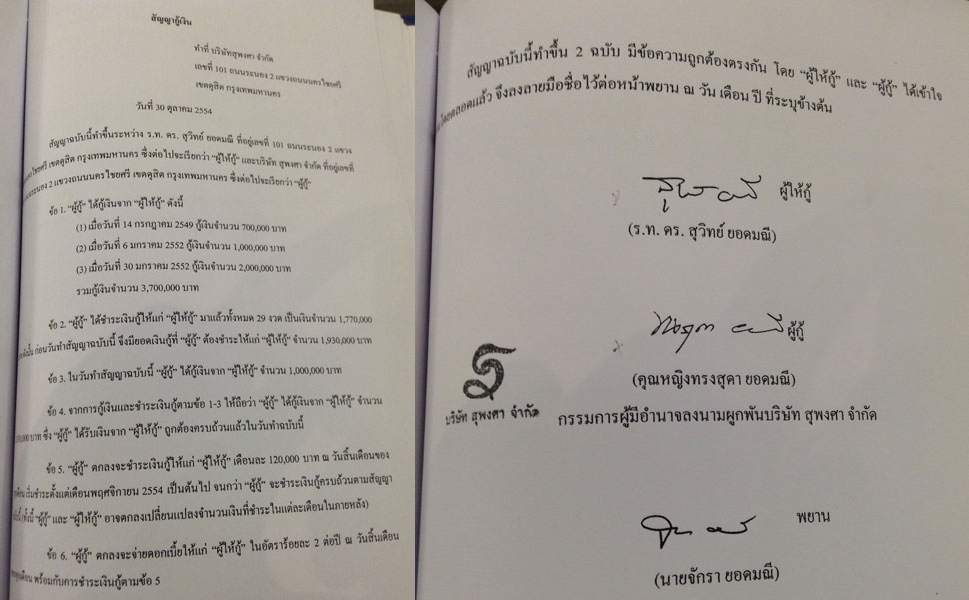 สัญญากู้เงิน
ทำที่ บริษัทสุพงศา จำกัด
เลขที่ 101 ถนนระนอง 2 แขวงถนนนครไชยศรี
เขตดุสิต กรุงเทพมหานคร
วันที่ 30 ตุลาคม 2554
สัญญาฉบับนี้ทำขึ้นระหว่าง ร.ท. ดร. สุวิทย์ ยอดมณี ที่อยู่เลขที่ 101 ถนนระนอง 2 แขวง
ไชยศรี เขตดุสิต กรุงเทพมหานคร ซึ่งต่อไปจะเรียกว่า “ผู้ให้กู้” และบริษัท สุพงศา จำกัด ที่อยู่เลขที่
ระนอง 2 แขวงถนนนครไชยศรี เขตดุสิต กรุงเทพมหานคร ซึ่งต่อไปจะเรียกว่า “ผู้กู้”
ข้อ 1. “ผู้กู้” ได้กู้เงินจาก “ผู้ให้กู้” ดังนี้
(1) เมื่อวันที่ 14 กรกฎาคม 2549 กู้เงินจำนวน 700,000 บาท
(2) เมื่อวันที่ 6 มกราคม 2552 กู้เงินจำนวน 1,000,000 บาท
(3) เมื่อวันที่ 30 มกราคม 2552 กู้เงินจำนวน 2,000,000 บาท
รวมกู้เงินจำนวน 3,700,000 บาท
ข้อ 2. “ผู้กู้” ได้ชำระเงินกู้ให้แก่ “ผู้ให้กู้” มาแล้วทั้งหมด 29 งวด เป็นเงินจำนวน 1,770,000
ก่อนวันทำสัญญาฉบับนี้ จึงมียอดเงินกู้ที่ “ผู้กู้” ต้องชำระให้แก่ “ผู้ให้กู้” จำนวน 1,930,000 บาท
ข้อ 3. ในวันทำสัญญาฉบับนี้ “ผู้กู้” ได้กู้เงินจาก “ผู้ให้กู้” จำนวน 1,000,000 บาท
ข้อ 4. จากการกู้เงินและชำระเงินกู้ตามข้อ 1-3 ให้ถือว่า “ผู้กู้” ได้กู้เงินจาก “ผู้ให้กู้” จำนวน
บาท ซึ่ง “ผู้กู้” ได้รับเงินจาก “ผู้ให้กู้” ถูกต้องครบถ้วนแล้วในวันทำฉบับนี้
ข้อ 5. “ผู้กู้” ตกลงจะชำระเงินกู้ให้แก่ “ผู้ให้กู้” เดือนละ 120,000 บาท ณ วันสิ้นเดือนของ
เริ่มชำระตั้งแต่เดือนพฤศจิกายน 2554 เป็นต้นไป จนกว่า “ผู้กู้” จะชำระเงินกู้ครบถ้วนตามสัญญา
(ทั้งนี้ “ผู้กู้” และ “ผู้ให้กู้” อาจตกลงเปลี่ยนแปลงจำนวนเงินที่ชำระในแต่ละเดือนในภายหลัง)
ข้อ 6. “ผู้กู้” ตกลงจะจ่ายดอกเบี้ยให้แก่ “ผู้ให้กู้” ในอัตราร้อยละ 2 ต่อปี ณ วันสิ้นเดือน
พร้อมกับการชำระเงินกู้ตามข้อ 5
สัญญาฉบับนี้ทำขึ้น 2 ฉบับ มีข้อความถูกต้องตรงกัน โดย “ผู้ให้กู้” และ “ผู้กู้” ได้เข้าใจ
โดยตลอดแล้ว จึงลงลายมือชื่อไว้ต่อหน้าพยาน ณ วัน เดือน ปี ที่ระบุข้างต้น
ผู้ให้กู้
(ร.ท. ดร. สุวิทย์ ยอดมณี)
ผู้กู้
(คุณหญิงทรงสุดา ยอดมณี)
บริษัท สุพงศา จำกัด
กรรมการผู้มีอำนาจลงนามผูกพันบริษัท สุพงศา จำกัด
พยาน
(นายจักรา ยอดมณี)